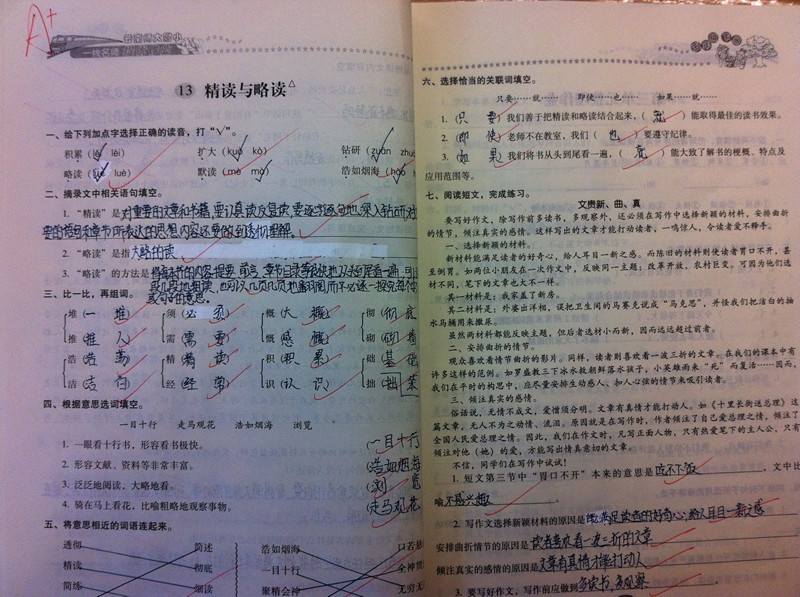 A+
一线名师
13 精读与略读△
一、给下列加点字选择正确的读音,打“√”。
积累(lěi lèi) 扩大(kuò kò) 钻研(zuān
略读(lüè luè) 默读(mè mò) 浩如烟海(hào
二、摘录文中相关语句填空。
1. “精读”是对重要的文章和书籍,要认真读反复读,要逐字逐句地深入钻研,对
要的语句和章节所表达的思想内容还要做到透彻理解。
2. “略读”是指大略的读
3. “略读”的方法是
三、比一比,再组词。
堆(一堆) 须(必须) 概(大概) 彻(彻底
推(推人) 需(需要) 慨(感慨) 砌(
浩(浩荡) 精(精读) 积(积累) 础(基础
洁(洁白) 经(经常) 识(认识) 拙(拙
四、根据意思选词填空。
一目十行 走马观花 浩如烟海 浏览
1. 一眼看十行书,形容看书极快。 (一目十行
2. 形容文献、资料等非常丰富。 (浩如烟海
3. 泛泛地阅读、大略地看。 (浏览
4. 骑在马上看花,比喻粗略地观察事物。 (走马观花
五、将意思相近的词语连起来。
透彻 简述 浩如烟海 口若悬
精读 彻底 一目十行 全神贯
简练 细读 聚精会神 无穷无
六、选择恰当的关联词填空。
只要……就…… 即使……也…… 如果……就……
1. (只要)我们善于把精读和略读结合起来,(就)能取得最佳的读书效果。
2. (即使)老师不在教室,我们(也)要遵守纪律。
3. (如果)我们将书从头到尾看一遍,(就)能大致了解书的梗概、特点及
应用范围等。
七、阅读短文,完成练习。
文贵新、曲、真
要写好作文,除写作前多读书,多观察外,还必须在写作中选择新颖的材料,安排曲折
的情节,倾注真实的感情。这样写出的文章才能打动读者,一鸣惊人,令读者爱不释手。
一、选择新颖的材料。
新材料能满足读者的好奇心,给人耳目一新之感。而陈旧的材料则使读者胃口不开,甚
至倒胃。如两位小朋友在一次作文中,反映同一主题:改革开放,农村巨变。可因为他们选
材不同,笔下的文章也大不一样。
其一材料是:我家盖了新房。
其二材料是:外婆出洋相,误把卫生间的马赛克说成“马克思”,并怪我们把洁白的抽
水马桶用来撒尿。
虽然两材料都能反映主题,但后者选材小而新,因而远远超过前者。
二、安排曲折的情节。
观众喜欢看情节曲折的影片。同样,读者则喜欢看一波三折的文章。在我们的课本中有
许多这样的范例。如罗盛教三下冰水救朝鲜落水孩子,小英雄雨来“死”而复活……因而,
我们在平时的构思中,应尽量安排生动感人、扣人心弦的情节来吸引读者。
三、倾注真实的感情。
俗话说,无情不成文,爱憎须分明。文章有真情才能打动人。如《十里长街送总理》这
篇文章,无人不为之动情、流泪。原因就是在写作时,作者倾注了自己爱总理之情,倾注了
全国人民爱总理之情。因此,我们在作文时,凡写正面人物,只有热爱笔下的主人公、只有
倾注对他(她)的爱,才能写出情真意切的文章。
不信,同学们在写作中试试!
1. 短文第三节中“胃口不开”本来的意思是吃不下饭,文中比
喻不感兴趣。
2. 写作文选择新颖材料的原因是能满足读者的好奇心,给人耳目一新之感
安排曲折情节的原因是读者喜欢看一波三折的文章
倾注真实的感情的原因是文章有真情才能打动人
3. 要写好作文,写作前应做到多读书,多观察